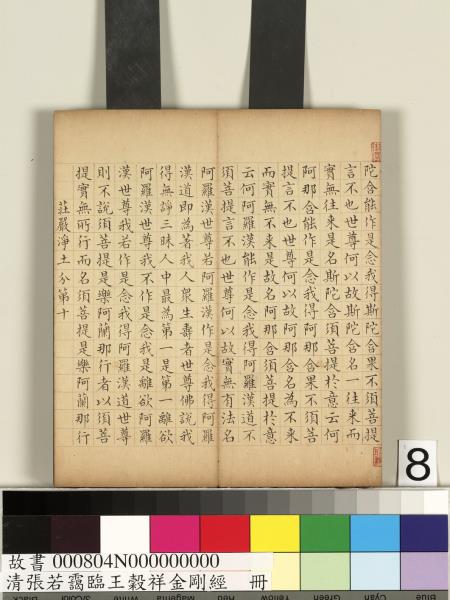 陀含能作是念我得斯陀含果不須菩提
言不也世尊何以故斯陀含名一往来而
實無往来是名斯陀含須菩提於意云何
阿那含能作是念我得阿那含果不須菩
提言不也世尊何以故阿那含名為不来
而實無不来是故名阿那含須菩提於意
云何阿羅漢能作是念我得阿羅漢道不
須菩提言不也世尊何以故實無有法名
阿羅漢世尊若阿羅漢作是念我得阿羅
漢道即為著我人衆生壽者世尊佛說我
得無諍三昧人中最為第一是第一離欲
阿羅漢世尊我不作是念我是離欲阿羅
漢世尊我若作是念我得阿羅漢道世尊
則不說須菩提是樂阿蘭那行者以須菩
提實無所行而名須菩提是樂阿蘭那行
莊嚴淨土分第十
8
故書 000804N000000000
清張若靄臨王穀祥金剛經 冊
Black
3/Color
White
Magenta
Red
Yellow
Green
Cyan
Blue